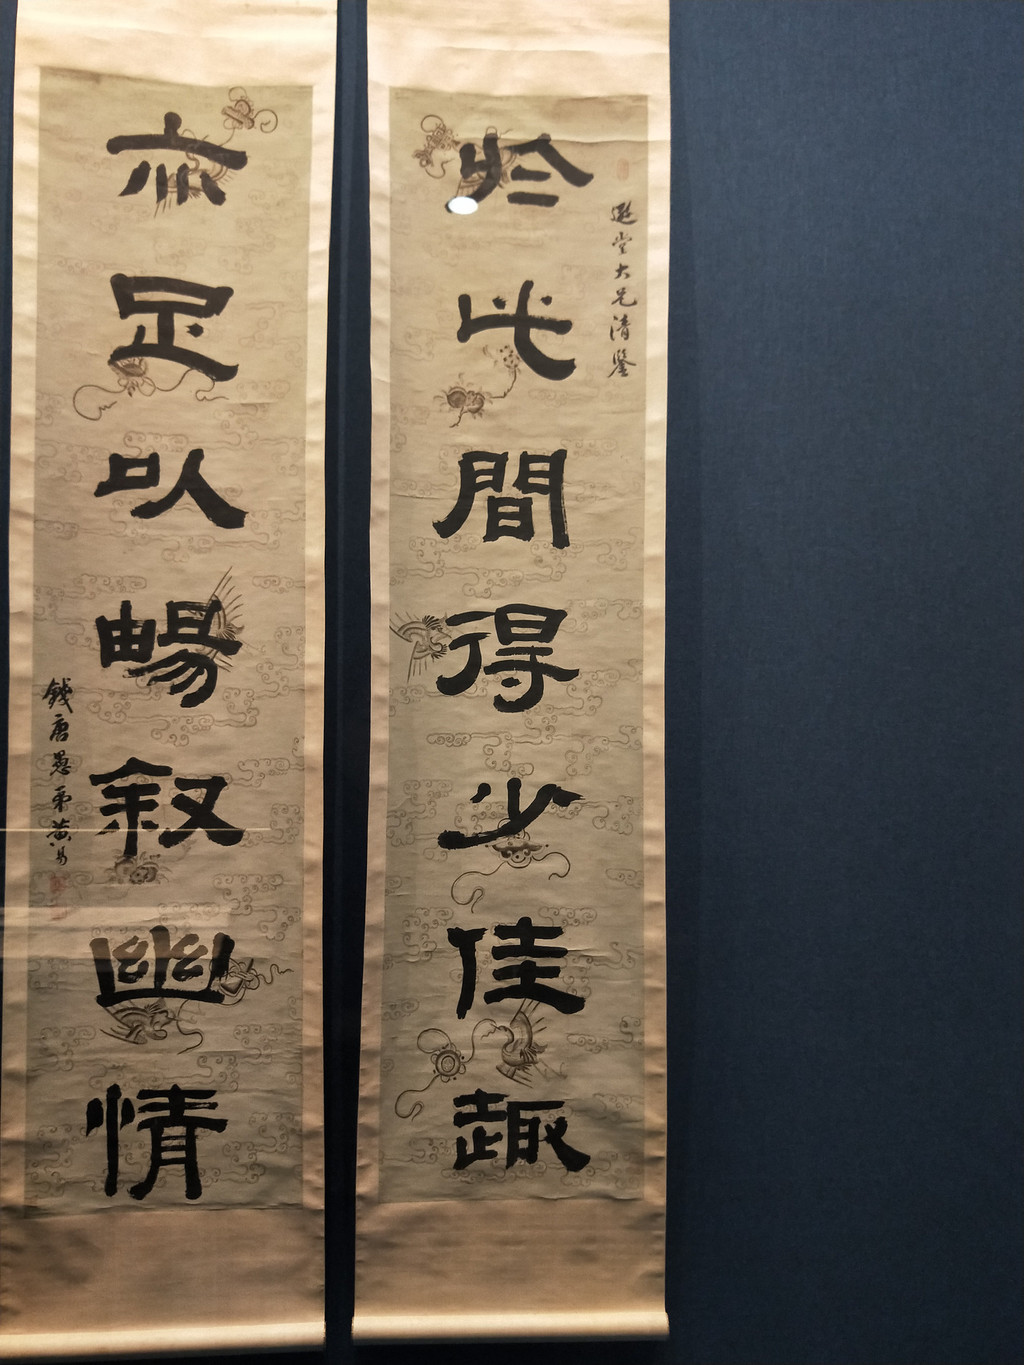 於此間得少佳趣
堂大兄清鑒
亦足以暢叙幽情
錢唐愚弟黃易